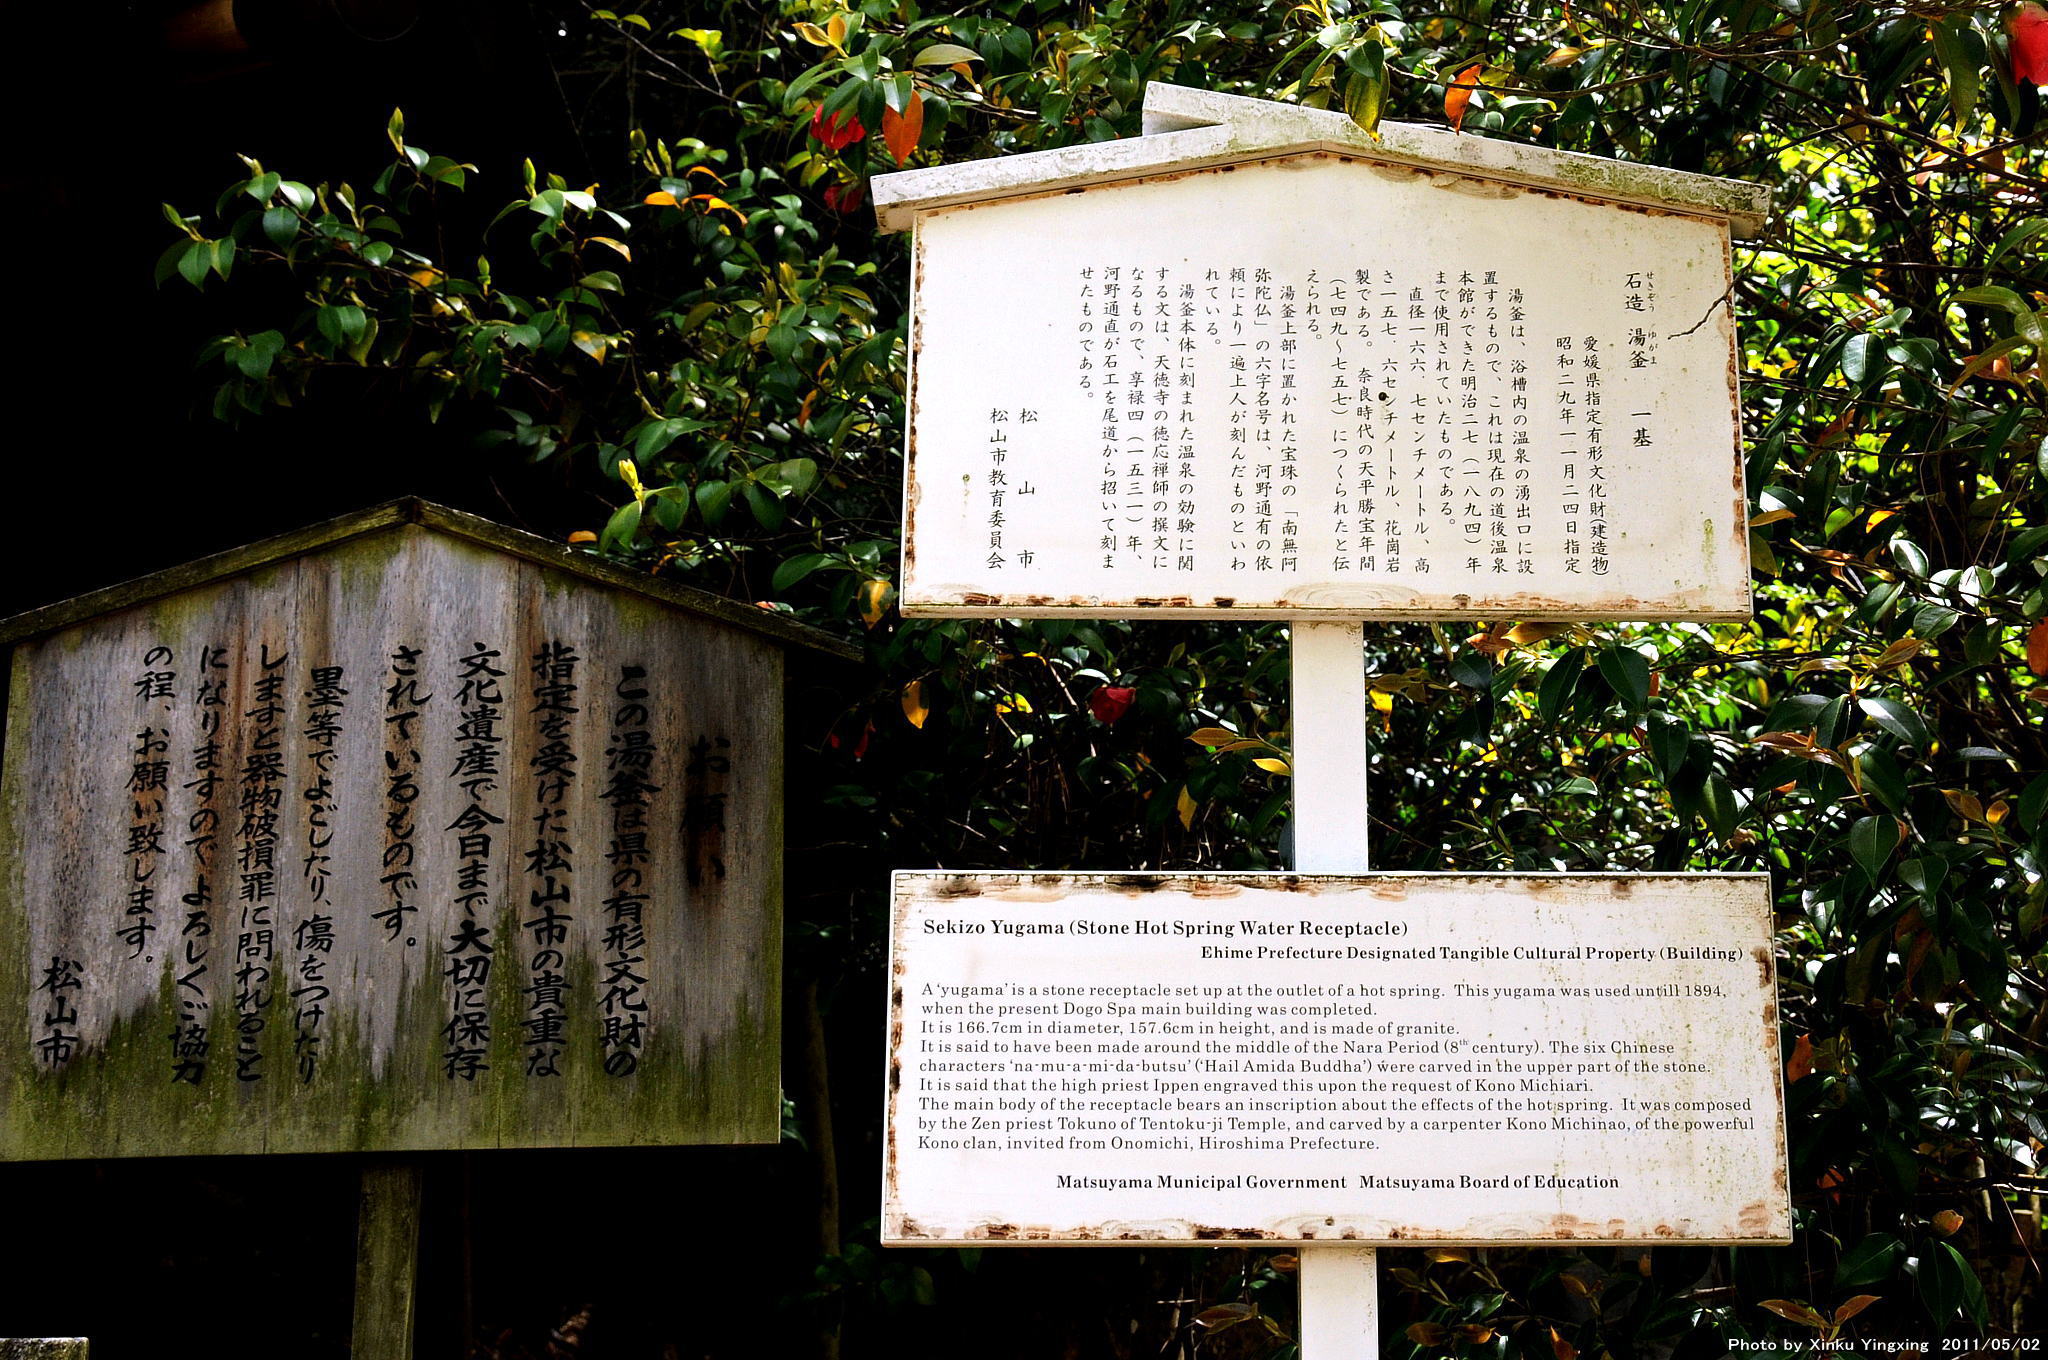 石造 湯釜 一基
せきぞう ゆがま
愛媛県指定有形文化財(建造物)
昭和二九年一一月二四日指定
湯釜は、浴槽内の温泉の湧出口に設
置するもので、これは現在の道後温泉
本館ができた明治二七(一八九四)年
まで使用されていたものである。
直径一六六．七センチメートル、高
さ一五七．六センチメートル、花崗岩
製である。 奈良時代の天平勝宝年間
(七四九～七五七)につくられたと伝
えられる。
湯釜上部に置かれた宝珠の「南無阿
弥陀仏」の六字名号は、河野通有の依
頼により一遍上人が刻んだものといわ
れている。
湯釜本体に刻まれた温泉の効験に関
する文は、天徳寺の徳応禅師の撰文に
なるもので、享禄四(一五三一)年、
河野通直が石工を尾道から招いて刻ま
せたものである。
松山市
松山市教育委員会
Sekizo Yugama (Stone Hot Spring Water Receptacle)
Ehime Prefecture Designated Tangible Cultural Property (Building)
A ‘yugama’ is a stone receptacle set up at the outlet of a hot spring. This yugama was used untill 1894,
when the present Dogo Spa main building was completed.
It is 166.7cm in diameter, 157.6cm in height, and is made of granite.
It is said to have been made around the middle of the Nara Period (8th century). The six Chinese
characters ‘na-mu-a-mi-da-butsu’ (‘Hail Amida Buddha’) were carved in the upper part of the stone.
It is said that the high priest Ippen engraved this upon the request of Kono Michiari.
The main body of the receptacle bears an inscription about the effects of the hot spring. It was composed
by the Zen priest Tokuno of Tentoku-ji Temple, and carved by a carpenter Kono Michinao, of the powerful
Kono clan, invited from Onomichi, Hiroshima Prefecture.
Matsuyama Municipal Government Matsuyama Board of Education
お願い
この湯釜は県の有形文化財の
指定を受けた松山市の貴重な
文化遺産で今日まで大切に保存
されているものです。
墨等でよごしたり、傷をつけたり
しますと器物破損罪に問われること
になりますのでよろしくご協力
の程、お願い致します。
松山市
Photo by Xinku Yingxing 2011/05/02